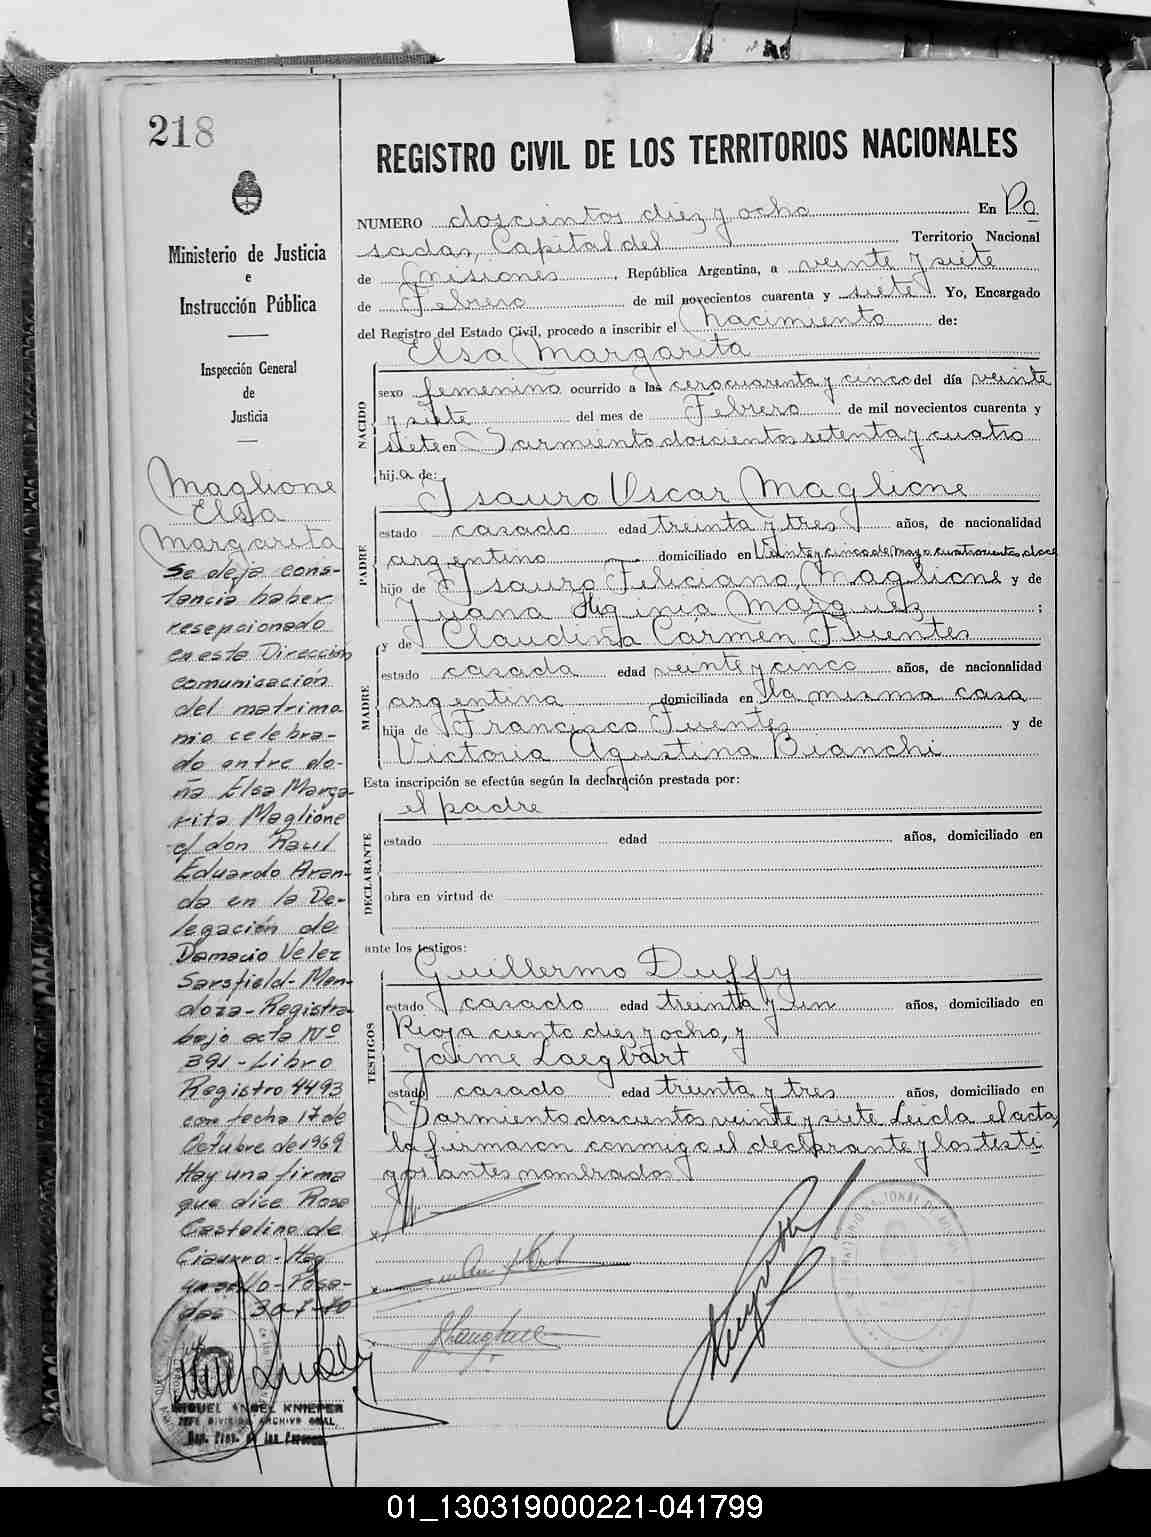 218
Ministerio de Justicia
e
Instrucción Pública
Inspección General
de
Justicia
Maglione
Elsa
Margarita
Se deja cons-
tancia haber
resepcionado
en esta Dirección
comunicación
del matrimo
nio celebra-
do entre do-
ña Elsa Marga-
rita Maglione
y don Raul
Eduardo Aran-
da en la De-
legación de
Damacio Velez
Sarsfield-Men-
doza-Registra-
bajo acta Nº
391-Libro
Registro 4493
con fecha 17 de
Octubre de 1969
Hay una firma
que dice Rosa
Castelino de
Hay
un sello-Posa-
das
MIGUEL ANGEL KNIEPER
JEFE DIVISION ARCHIVO GRAL.
REGISTRO CIVIL DE LOS TERRITORIOS NACIONALES
NUMERO doscientos diez y ocho En Po
sadas, Capital del Territorio Nacional
de Misiones, República Argentina, a veinte y siete
de Febrero de mil novecientos cuarenta y siete Yo, Encargado
del Registro del Estado Civil, procedo a inscribir el Nacimiento de:
Elsa Margarita
NACIDO
sexo femenino ocurrido a las cero cuarenta y cinco del día veinte
y siete del mes de Febrero de mil novecientos cuarenta y
siete en Sarmiento doscientos setenta y cuatro
hij.a de:
Isauro Oscar Maglione
PADRE
estado casado edad treinta y tres años, de nacionalidad
argentino domiciliado en Veinte y cinco de mayo cuatrocientos doce
hijo de Isauro Feliciano Maglione y de
Juana Higinia Marquez;
y de Claudina Carmen Fuentes
MADRE
estado casada edad veinte y cinco años, de nacionalidad
argentina domiciliada en la misma casa
hija de Francisco Fuentes y de
Victoria Agustina Bianchi
Esta inscripción se efectúa según la declaración prestada por:
el padre
DECLARANTE
estado edad años, domiciliado en
obra en virtud de
ante los testigos:
Guillermo Duffy
TESTIGOS
estado casado edad treinta y un años, domiciliado en
Rioja ciento diez y ocho, y
Jaime
estado casado edad treinta y tres años, domiciliado en
Sarmiento doscientos veinte y siete Leida el acta,
la firmaron conmigo el declarante y los testi
gos antes nombrados
01_130319000221-041799